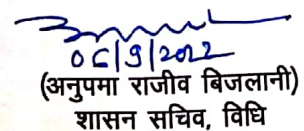 06/9/2022
(अनुपमा राजीव बिजलानी)
शासन सचिव, विधि